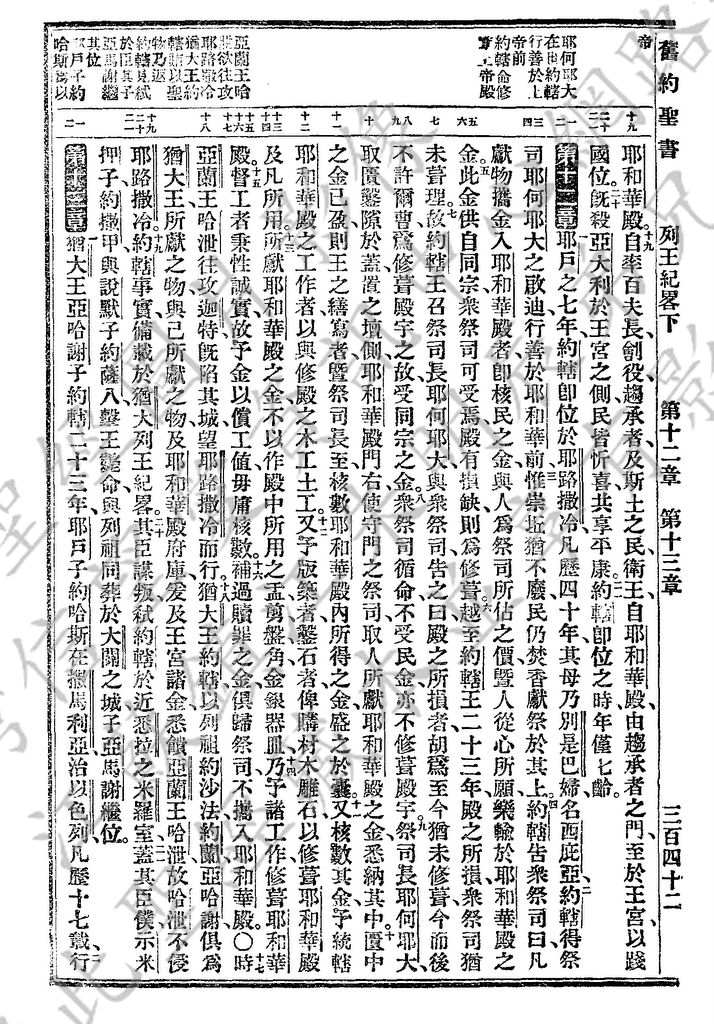 舊約聖書 列王紀畧下 第十二章 第十三章 三百四十二
帝
耶何耶大
在世約轄
行善於上
帝前
約轄命修
葺上帝殿
亞蘭王哈
泄欲往攻
耶路撒冷
猶大王約
轄請以聖
物乃返
約轄見弒
於臣其子
亞馬謝繼
其位
耶戶子約
哈斯為以
十九 耶和華殿十九自率百夫長劊役趨承者及斯土之民衛王自耶和華殿由趨承者之門至於王宮以踐
二十 國位二十旣殺亞大利於王宮之側民皆忻喜共享平康約轄卽位之時年僅七齡
一二 第十二章 一耶戶之七年約轄卽位於耶路撒冷凡歷四十年其母乃別是巴婦名西庇亞二約轄得祭
三四 司耶何耶大之啟迪行善於耶和華前三惟崇坵猶不廢民仍焚香獻祭於其上四約轄告衆祭司曰凡
獻物攜金入耶和華殿者卽核民之金與人為祭司所估之價曁人從心所願樂輸於耶和華殿之
五六 金五此金供自同宗衆祭司可受焉殿有損缺則為修葺六越至約轄王二十三年殿之所損衆祭司猶
七 未葺理七故約轄王召祭司長耶何耶大與衆祭司告之曰殿之所損者胡為至今猶未修葺今而後
八九 不許爾曹為修葺殿宇之故受同宗之金八衆祭司循命不受民金亦不修葺殿宇九祭司長耶何耶大
十 取匱鑿隙於蓋置之壇側耶和華殿門右使守門之祭司取人所獻耶和華殿之金悉納其中十匱中
十一 之金已盈則王之繕寫者曁祭司長至核數耶和華殿內所得之金盛之於囊十一又核數其金予統轄
十二 耶和華殿之工作者以與修殿之木工土工十二又予版築者鑿石者俾購材木雕石以修葺耶和華殿
十三十四 及凡所用十三所獻耶和華殿之金不以作殿中所用之盂剪盤角金銀器皿十四乃予諸工作修葺耶和華
十五十六十七 殿十五督工者秉性誠實故予金以償工值毋庸核數十六補過贖罪之金俱歸祭司不攜入耶和華殿〇十七時
十八 亞蘭王哈泄往攻迦特旣陷其城望耶路撒冷而行十八猶大王約轄以列祖約沙法約蘭亞哈謝俱為
猶大王所獻之物與己所獻之物及耶和華殿府庫爰及王宮諸金悉饋亞蘭王哈泄故哈泄不侵
十九二十二一 耶路撒冷十九約轄事實備載於猶大列王紀畧二十其臣謀叛弒約轄於近悉拉之米羅室二一蓋其臣僕示米
押子約撒甲與說默子約薩八擊王斃命與列祖同葬於大闢之城子亞馬謝繼位
一二 第十三章 一猶大王亞哈謝子約轄二十三年耶戶子約哈斯在撒馬利亞治以色列凡歷十七載二行